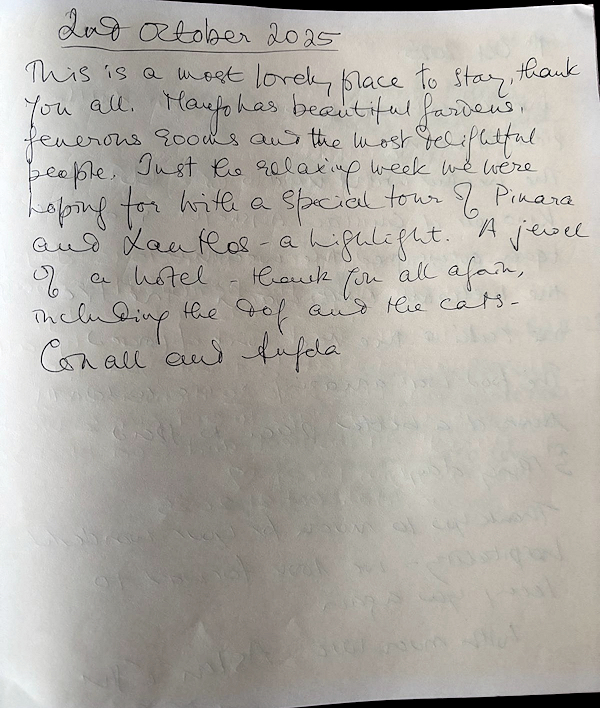 2nd October 2025
This is a most lovely place to stay, thank
you all. has beautiful gardens,
generous rooms and the most delightful
people. Just the relaxing week we were
hoping for with a special tour of Pinara
and Xanthos - a highlight. A jewel
of a hotel - thank you all again,
including the dog and the cats -
Conall and